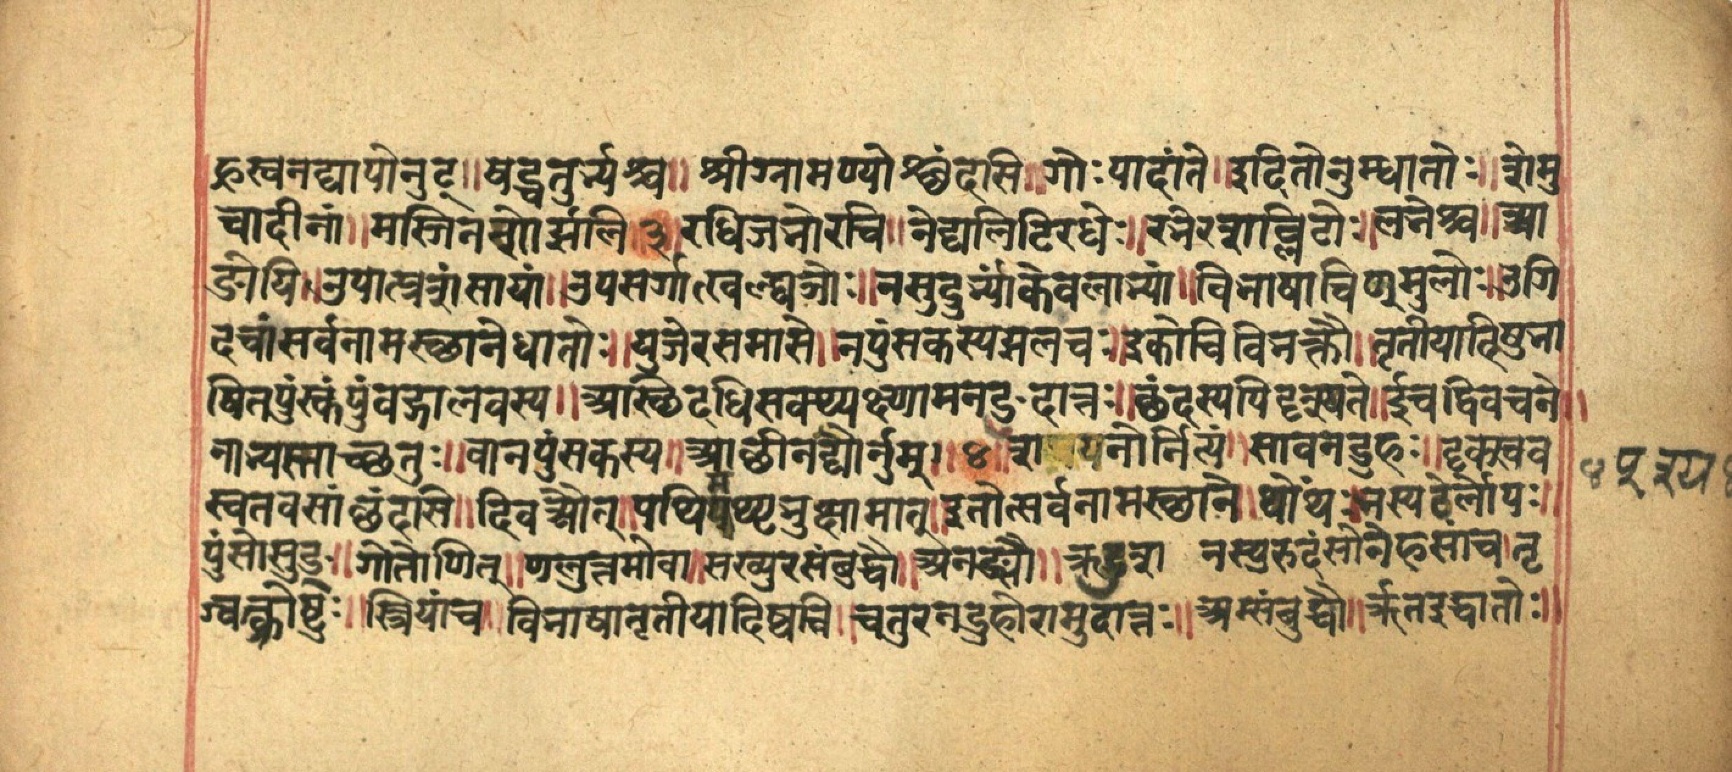 ह्रस्वनद्यापोनुट्॥षट्चतुर्भ्यश्च॥श्रीग्रामण्योश्छंदसि॥गोःपादांते॥इदितोनुम्धातोः॥शेमु
चादीनां॥मस्जिनशोर्झलि३रधिजभोरचि॥नेट्यलिटिरधेः॥रभेरशब्लिटोः॥लभेश्च॥आ
ङोयि॥उपात्प्रशंसायां॥उपसर्गात्खल्घञोः॥नसुदुर्भ्यांकेवलाभ्यां॥विभाषाचिण्मुलोः॥उगि
दचांसर्वनामस्छानेधातोः॥युजेरसमासे॥नपुंसकस्यझलचः॥इकोचिविभक्तौ॥तृतीयादिषुभा
षितपुंस्कंपुंवद्गालवस्य॥अस्छिदधिसक्थ्यक्ष्णामनङुदात्तः॥छंदस्यपिदृश्यते॥ईचद्विवचने॥
नाभ्यस्ताच्छतुः॥वानपुंसकस्य॥आछीनद्योर्नुम्।४॥शपयनोर्नित्यं॥सावनडुहः॥दृक्स्वव
स्वतवसांछंदसि॥दिवऔत्॥पथिमथ्यृभुक्षामात्॥इतोत्सर्वनामस्छाने॥थोंथः॥भस्यटेर्लोपः॥
पुंसोसुङ्॥गोतोणित्॥णलुत्तमोवा॥सख्युरसंबुद्धौ॥अनङ्सौ॥ऋदुश नस्पुरुदंसोनेहसांच।तृ
ज्वत्क्रोष्टुः॥स्त्रियांच॥विभाषातृतीयादिष्वचि॥चतुरनडुहोरामुदात्तः॥अम्संबुद्धौ॥ॠतइद्धातोः॥